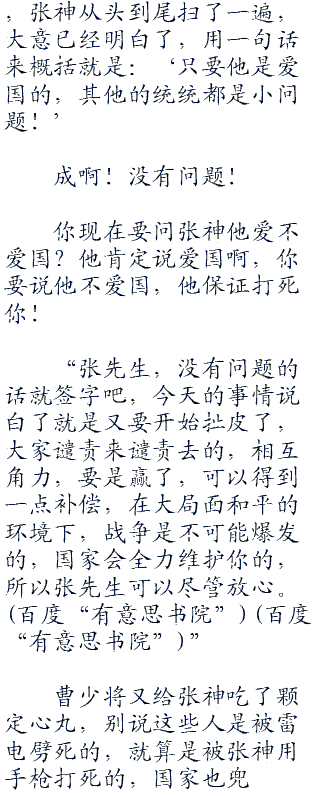 ，张神从头到尾扫了一遍，
大意已经明白了，用一句话
来概括就是：‘只要他是爱
国的，其他的统统都是小问
题！’
成啊！没有问题！
你现在要问张神他爱不
爱国？他肯定说爱国啊，你
要说他不爱国，他保证打死
你！
“张先生，没有问题的
话就签字吧，今天的事情说
白了就是又要开始扯皮了，
大家谴责来谴责去的，相互
角力，要是赢了，可以得到
一点补偿，在大局面和平的
环境下，战争是不可能爆发
的，国家会全力维护你的，
所以张先生可以尽管放心。
(百度“有意思书院”)(百度
“有意思书院”)”
曹少将又给张神吃了颗
定心丸，别说这些人是被雷
电劈死的，就算是被张神用
手枪打死的，国家也兜